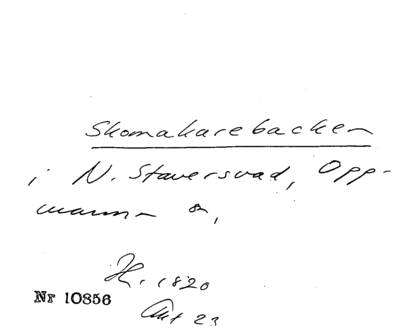 Skomakarebacken
i N. Staversvad, Opp-
manna sn,
H. 1820
Nr 10856
Akt 23